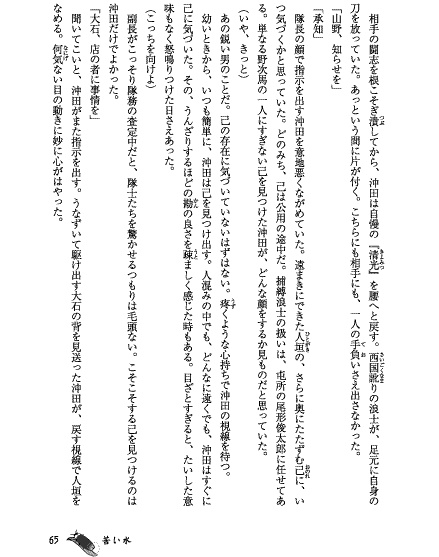 相手の闘志を根こそぎ潰してから、沖田は自慢の『清光』を腰へと戻す。西国訛りの浪士が、足元に自身の
刀を放っていた。あっという間に片が付く。こちらにも相手にも、一人の手負いさえ出さなかった。
「山野、知らせを」
「承知」
隊長の顔で指示を出す沖田を意地悪くながめていた。遠まきにできた人垣の、さらに奥にたたずむ己に、い
つ気づくかと思っていた。どのみち、己は公用の途中だ。捕縛浪士の扱いは、屯所の尾形俊太郎に任せてあ
る。単なる野次馬の一人にすぎない己を見つけた沖田が、どんな顔をするか見ものだと思っていた。
(いや、きっと)
あの鋭い男のことだ。己の存在に気づいていないはずはない。疼くような心持ちで沖田の視線を待つ。
幼いときから、いつも簡単に、沖田は己を見つけ出す。人混みの中でも、どんなに遠くでも、沖田はすぐに
己に気づいた。その、うんざりするほどの勘の良さを疎ましく感じた時もある。目ざとすぎると、たいした意
味もなく怒鳴りつけた日さえあった。
(こっちを向けよ)
副長がこっそり隊務の査定中だと、隊士たちを驚かせるつもりは毛頭ない。こそこそする己を見つけるのは
沖田だけでよかった。
「大石、店の者に事情を」
聞いてこいと、沖田がまた指示を出す。うなずいて駆け出す大石の背を見送った沖田が、戻す視線で人垣を
なめる。何気ない目の動きに妙に心がはやった。
65 苦い水